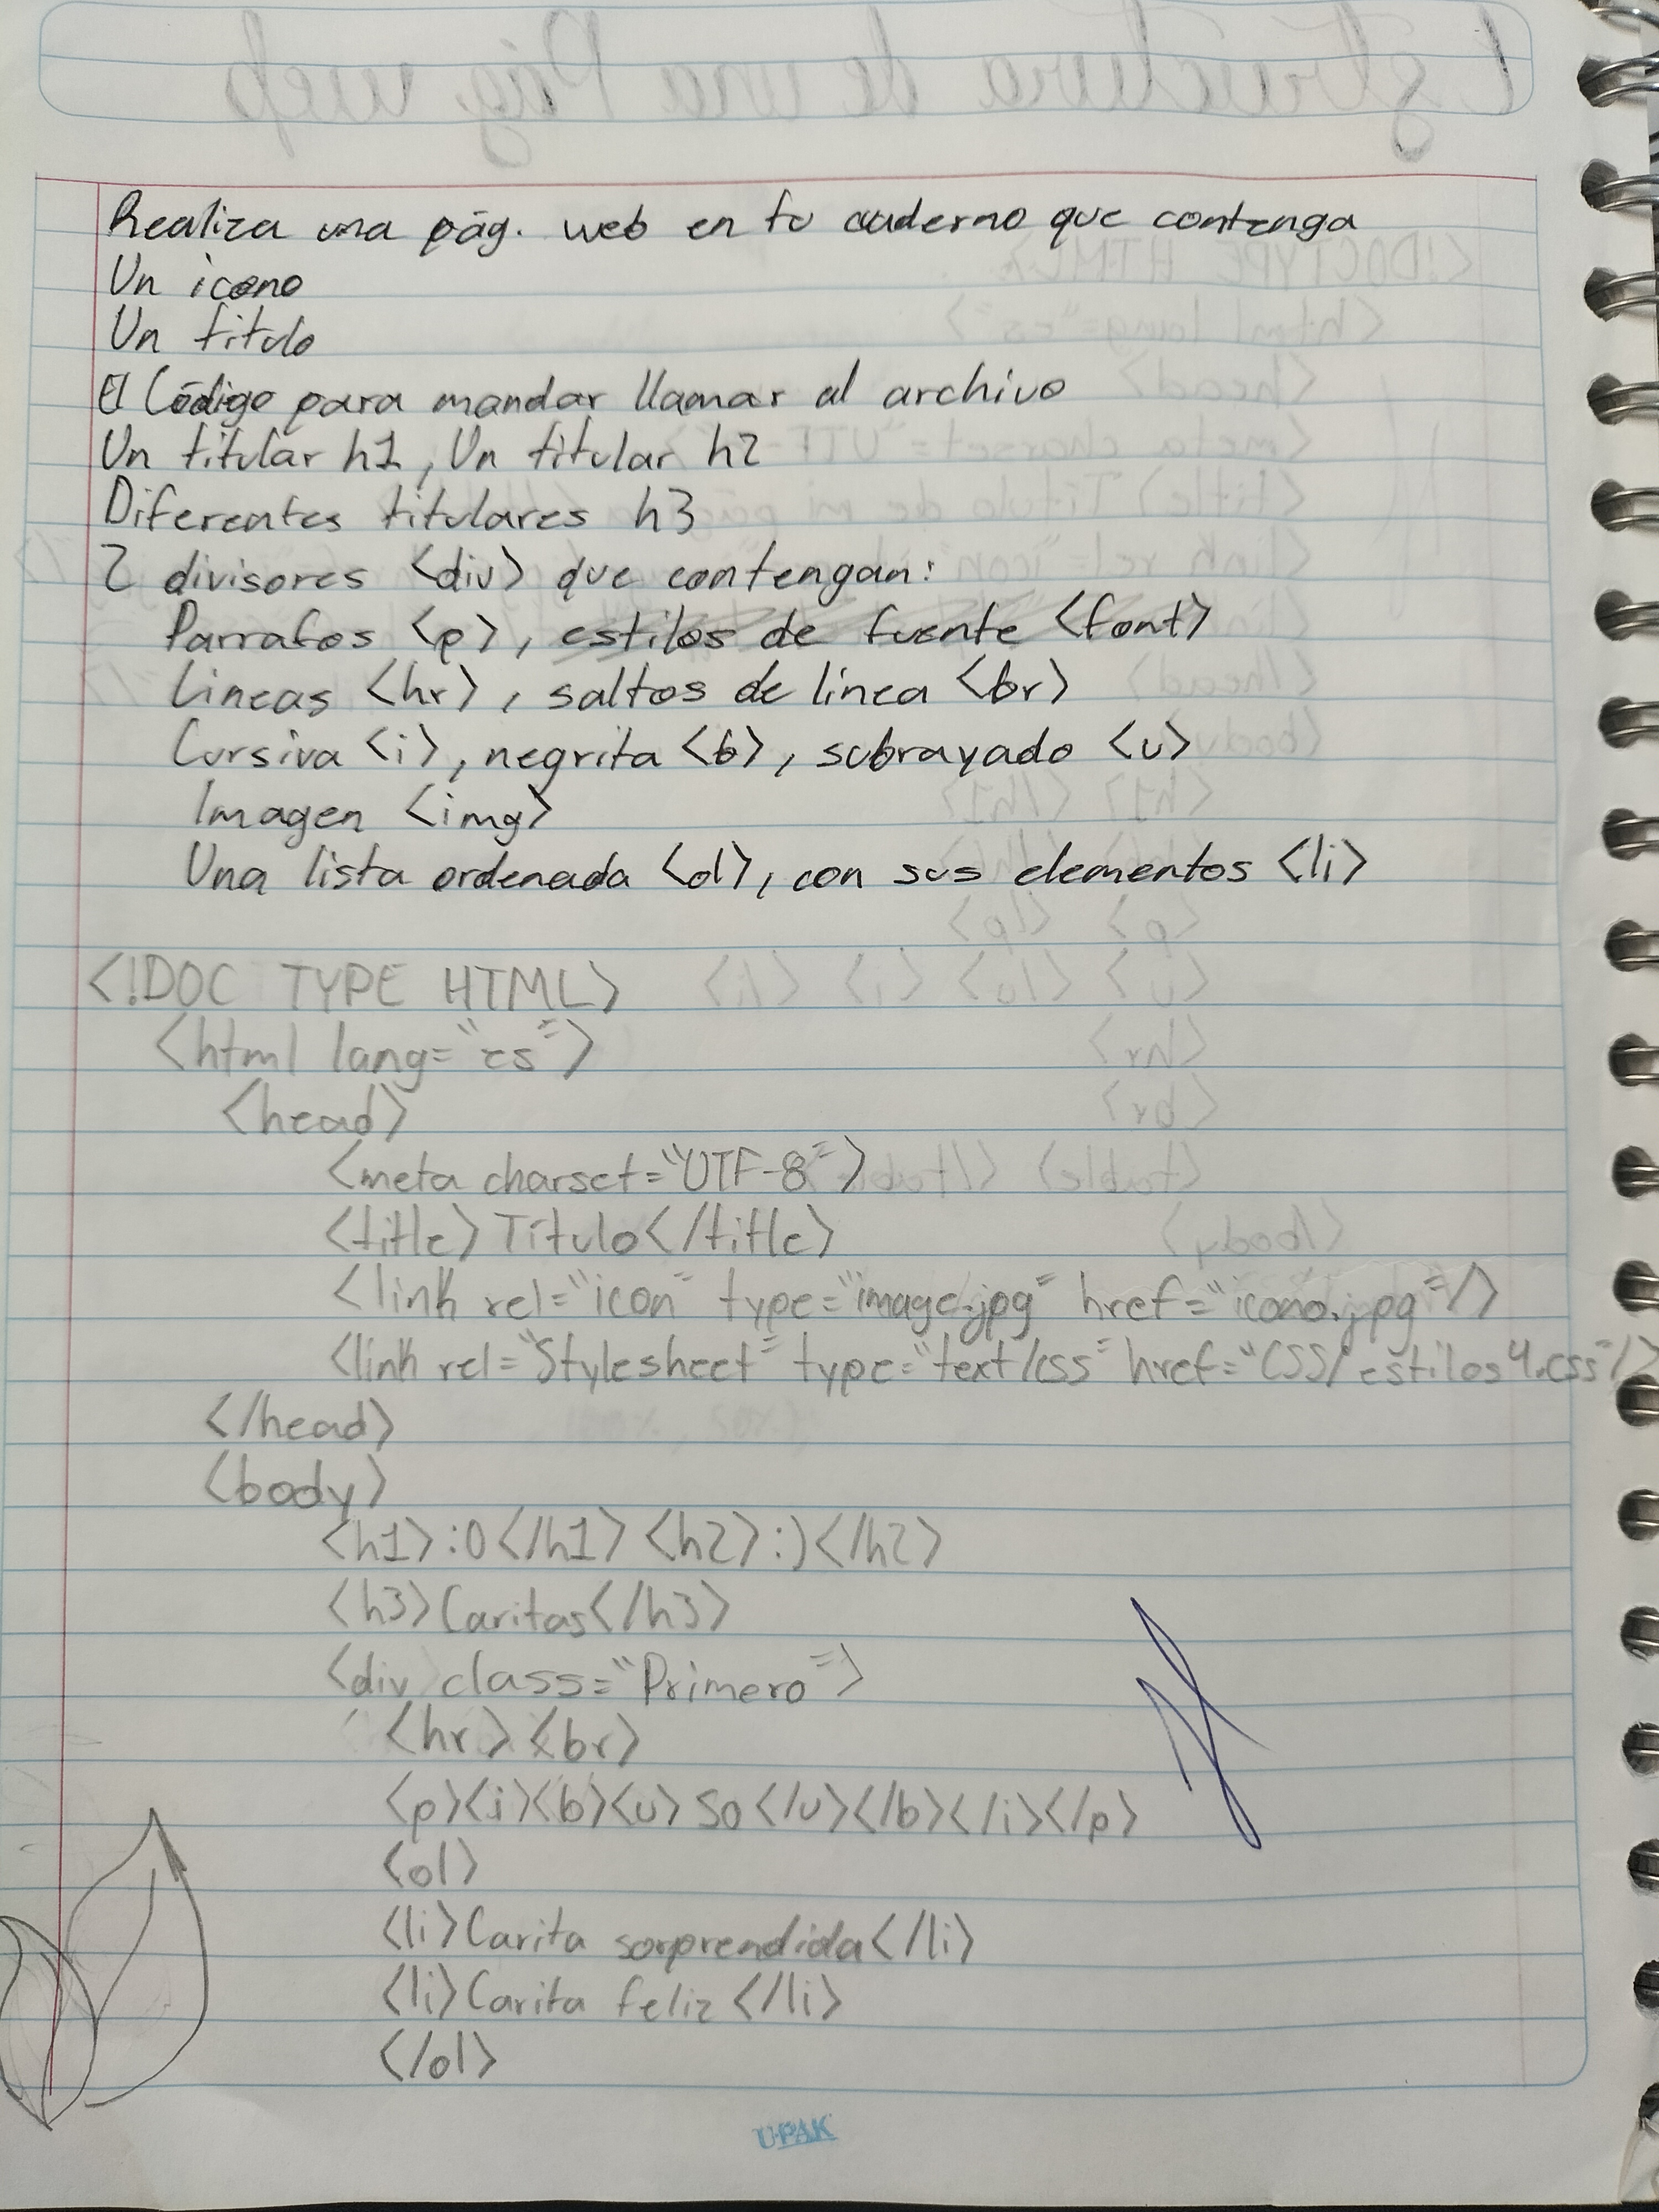 Estructura de una Pág. web
Realiza una pág. web en tu cuaderno que contenga
Un icono
Un titulo
El Código para mandar llamar al archivo
Un titular h1, Un titular h2
Diferentes titulares h3
2 divisores <div> que contengan:
Parrafos <p>, estilos de fuente <font>
Lineas <hr>, saltos de linea <br>
Cursiva <i>, negrita <b>, subrayado <u>
Imagen <img>
Una lista ordenada <ol>, con sus elementos <li>
<!DOC TYPE HTML>
<html lang="es">
<head>
<meta charset="UTF-8">
<title>Titulo</title>
<link rel="icon" type="image.jpg" href="icono.jpg"/>
<link rel="Stylesheet" type="text/css" href="CSS/estilos4.css"/>
</head>
<body>
<h1>:O</h1> <h2>:)</h2>
<h3>Caritas</h3>
<div class="Primero">
<hr><br>
<p><i><b><u>So</u></b></i></p>
<ol>
<li>Carita sorprendida</li>
<li>Carita feliz</li>
</ol>
U-PAK